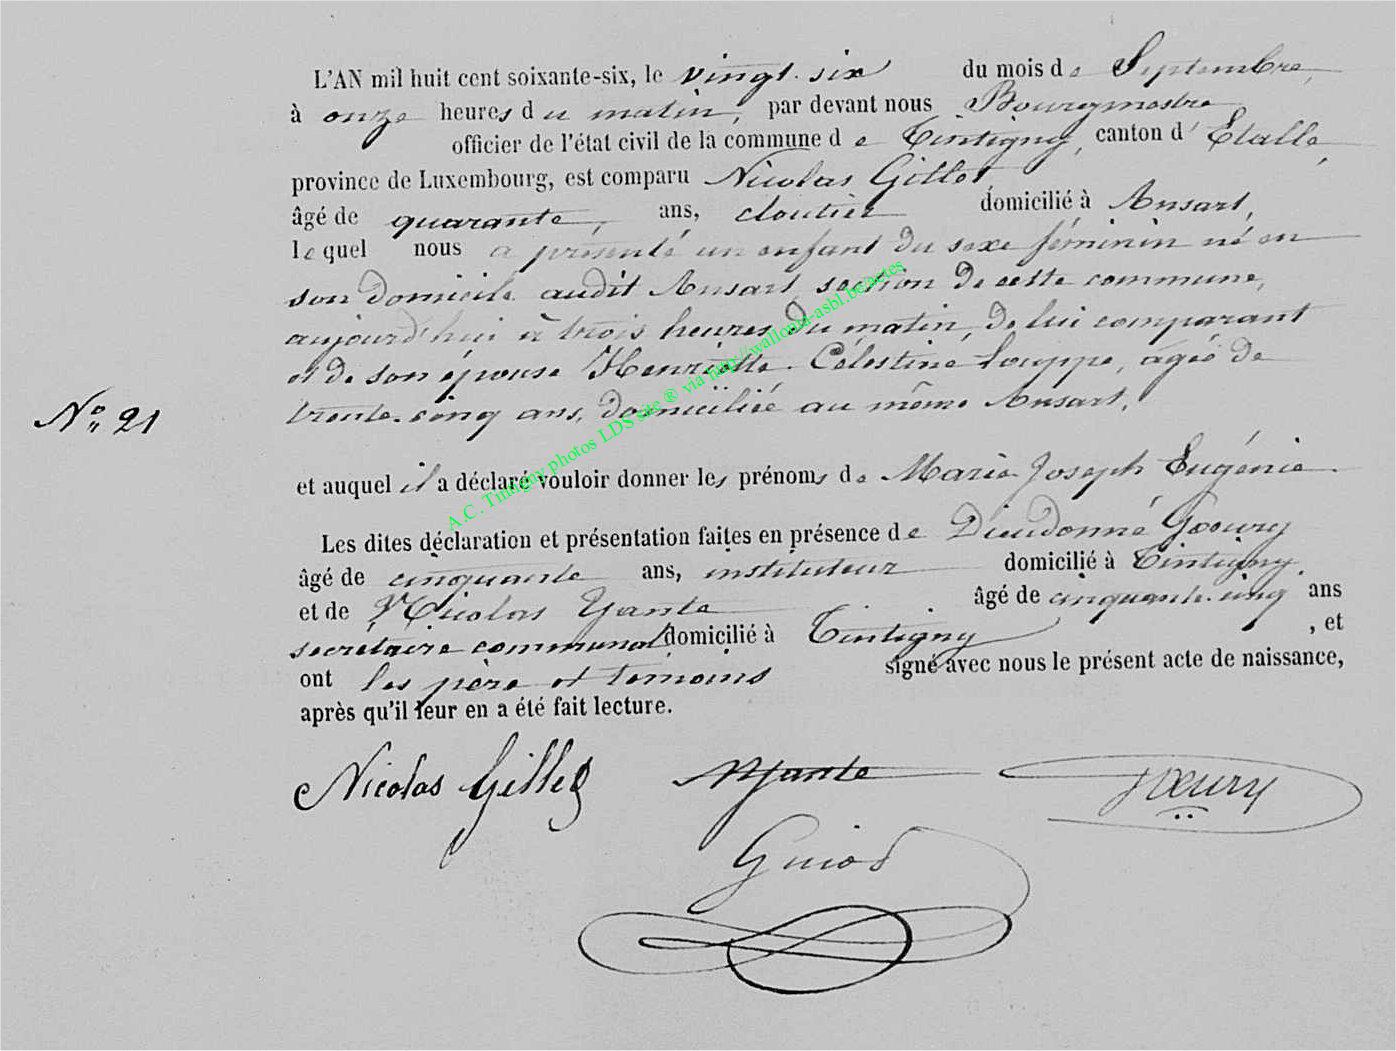 L'AN mil huit cent soixante-six, le vingt-six du mois de Septembre,
à onze heures du matin, par devant nous Bourgmestre
officier de l'état civil de la commune de Tintigny, canton d'Etalle,
province de Luxembourg, est comparu Nicolas Gillet
âgé de quarante, ans, cloutier domicilié à Ansart,
lequel nous a présenté un enfant du sexe féminin né en
son domicile audit Ansart, section de cette commune,
aujourd'hui à trois heures du matin, de lui comparant
et de son épouse Henriette-Célestine Louppe, agée de
trente-cinq ans, domiciliée au même Ansart,
No 21
et auquel il a déclaré vouloir donner les prénoms de Marie-Joseph Eugénie
Les dites déclaration et présentation faites en présence de Dieudonné Goeury
âgé de cinquante ans, instituteur domicilié à Tintigny
et de Nicolas Yante âgé de cinquante-cinq ans
secrétaire communal domicilié à Tintigny, et
ont les père et témoins signé avec nous le présent acte de naissance,
après qu'il leur en a été fait lecture.
Nicolas Gillet NYante Goeury
Guiot
A.C. Tintigny photos LDS site ® via http://wallonia-asbl.be/actes